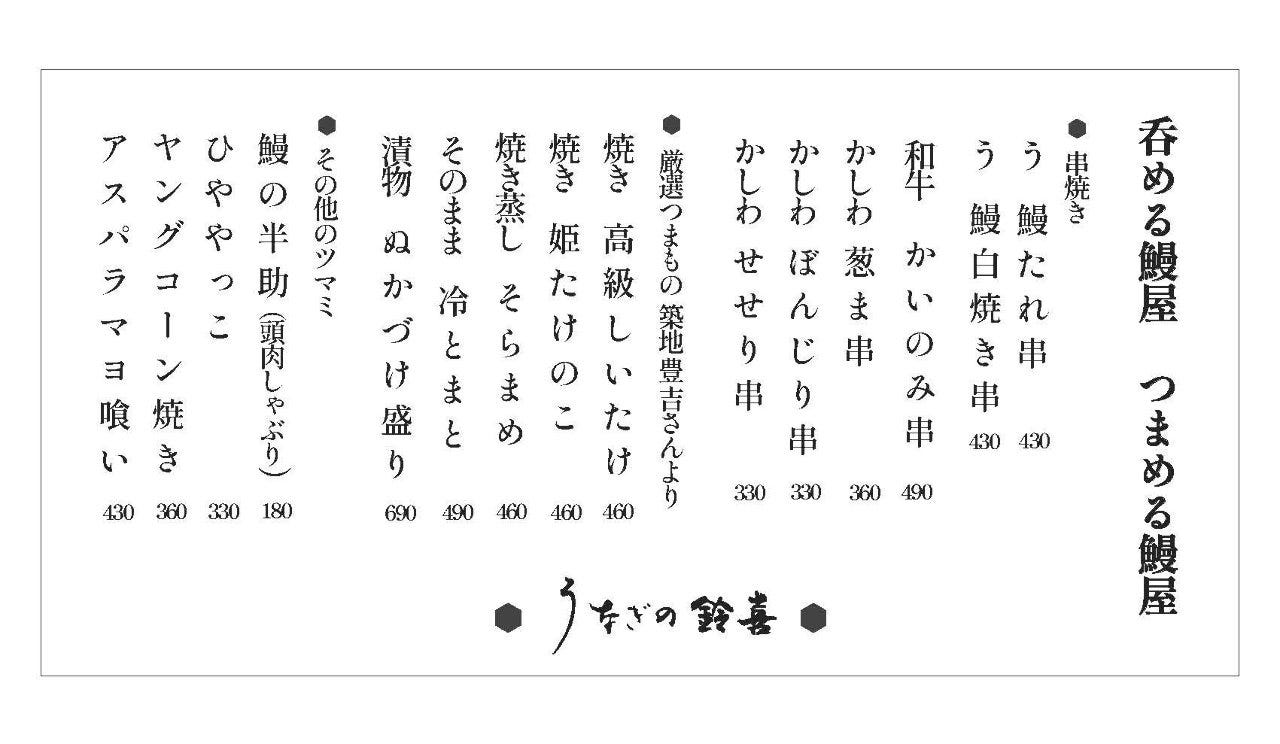 呑める鰻屋　つまめる鰻屋
串焼き
う　鰻たれ串 430
う　鰻白焼き串 430
和牛　かいのみ串 490
かしわ 葱ま串 360
かしわ ぼんじり串 330
かしわ せせり串 330
厳選つまもの 築地豊吉さんより
焼き　高級しいたけ 460
焼き　姫たけのこ 460
焼き蒸し　そらまめ 460
そのまま　冷とまと 490
漬物　ぬかづけ盛り 690
その他のツマミ
鰻の半助（頭肉しゃぶり） 180
ひややっこ 330
ヤングコーン焼き 360
アスパラマヨ喰い 430
うなぎの 鈴喜